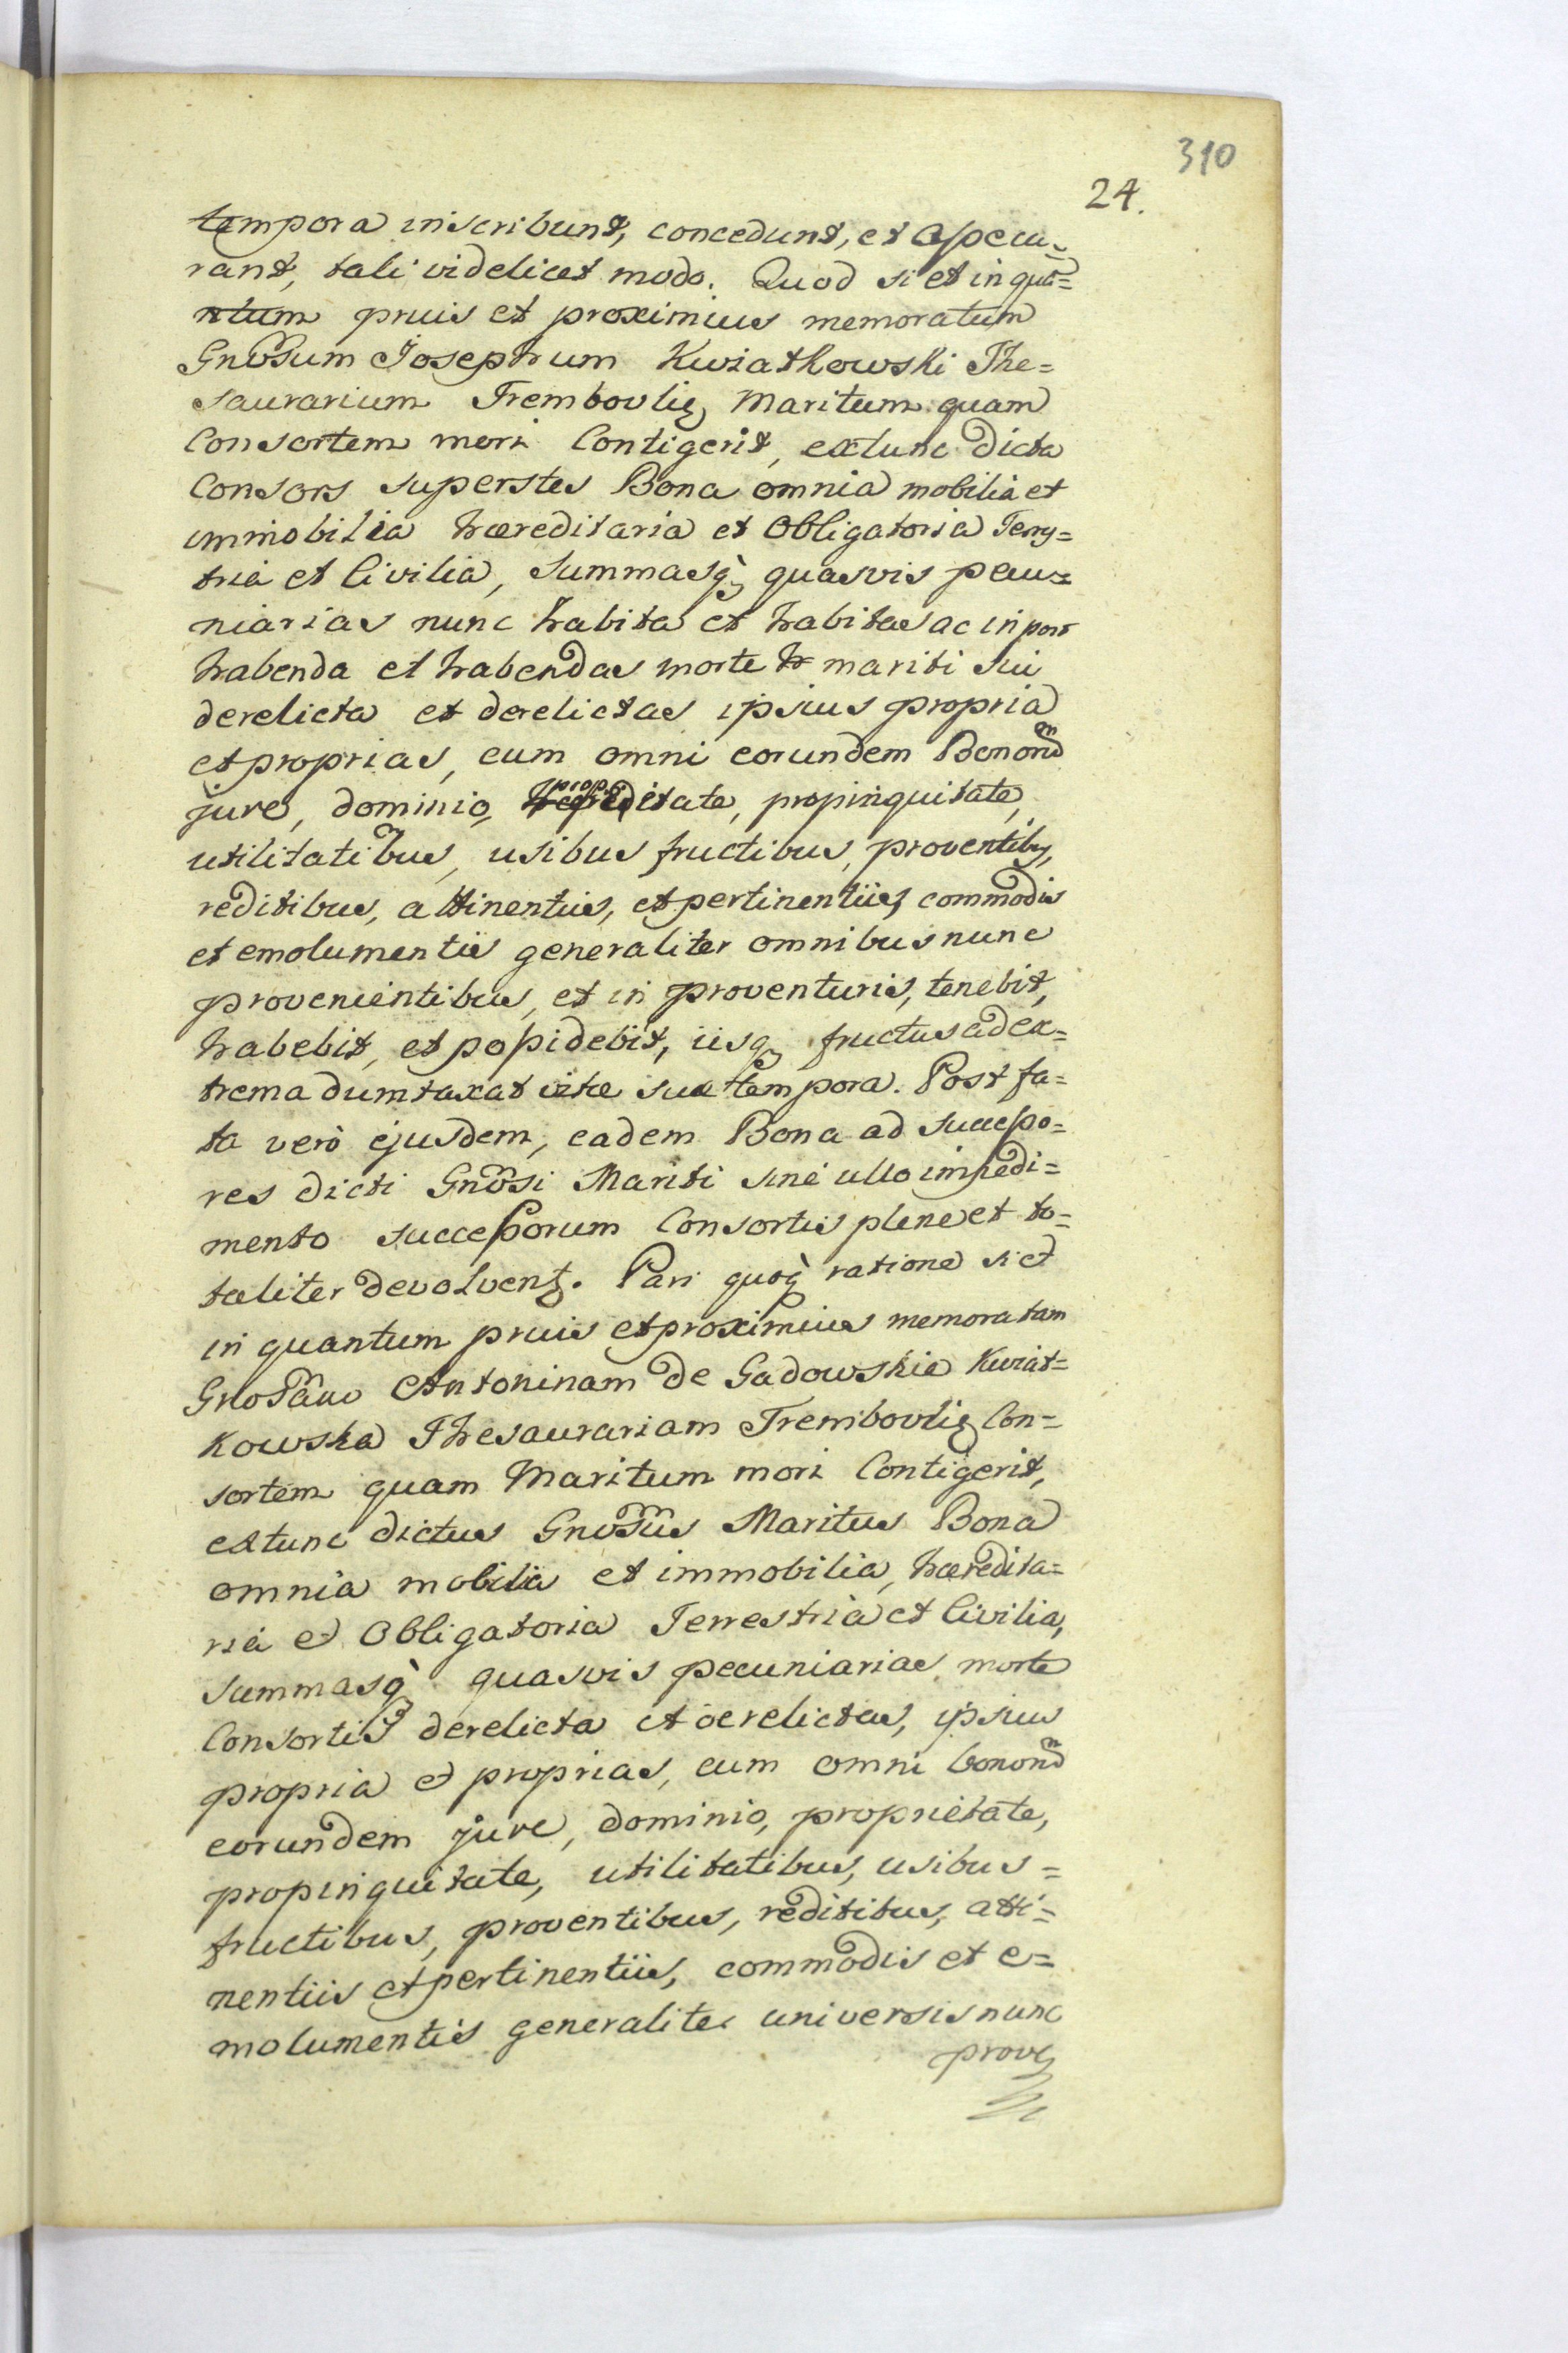 310
24.
tempora inscribunt, concedunt, et assecu=
rant, tali videlicet modo. Quod si et in qua=
ntum prius et proximius memoratum
Gnosum Josephum Kwiatkowski The=
saurarium Trembovlię Maritum quam
Consortem mori Contigerit, extunc dicta
Consors superstes Bona omnia mobilia et
immobilia haereditaria et Obligatoria Terry=
tria et Civilia, Summasq̀ȝ quasvis pecu=
niarias nunc habita et habitas ac in post
habenda et habendas morte mariti sui
derelicta et derelictas ipsius propria
et proprias, cum omni eorundem Bonorum
jure, dominio, proprietate, propinquitate,
utilitatibus, usibus fructibus, proventibȝ,
reditibus, attinentiis, et pertinentiis, commodis
et emolumentis generaliter omnibus nunc
provenientibus, et in proventuris, tenebit,
habebit, et possidebit, iisqȝ fructus ad ex=
trema dumtaxat vitae suae tempora. Post fa=
ta verò ejusdem, eadem Bona ad successo=
res dicti Gnõsi Mariti sine ullo impedi=
mento successorum Consortis plene et to=
taliter devolventȝ. Pari quoq̀ȝ ratione si et
in quantum prius et proximius memoratam
Gnosam Antoninam de Gadowskie Kwiat=
kowska Thesaurariam Trembovlię Con=
sortem quam Maritum mori Contigerit,
extunc dictus Gnosus Maritus Bona
omnia mobilia et immobilia, haeredita=
ria et Obligatoria Terrestria et Civilia,
Summasq̀ȝ quasvis pecuniarias, morte
Consortis derelicta et derelictas, ipsius
propria et proprias, cum omni bonorum
eorundem jure, dominio, proprietate,
propinquitate, utilitatibus, usibus=
fructibus, proventibus, reditibus, atti=
nentiis et pertinentiis, commodis et e=
molumentis generaliter universis nunc
prove